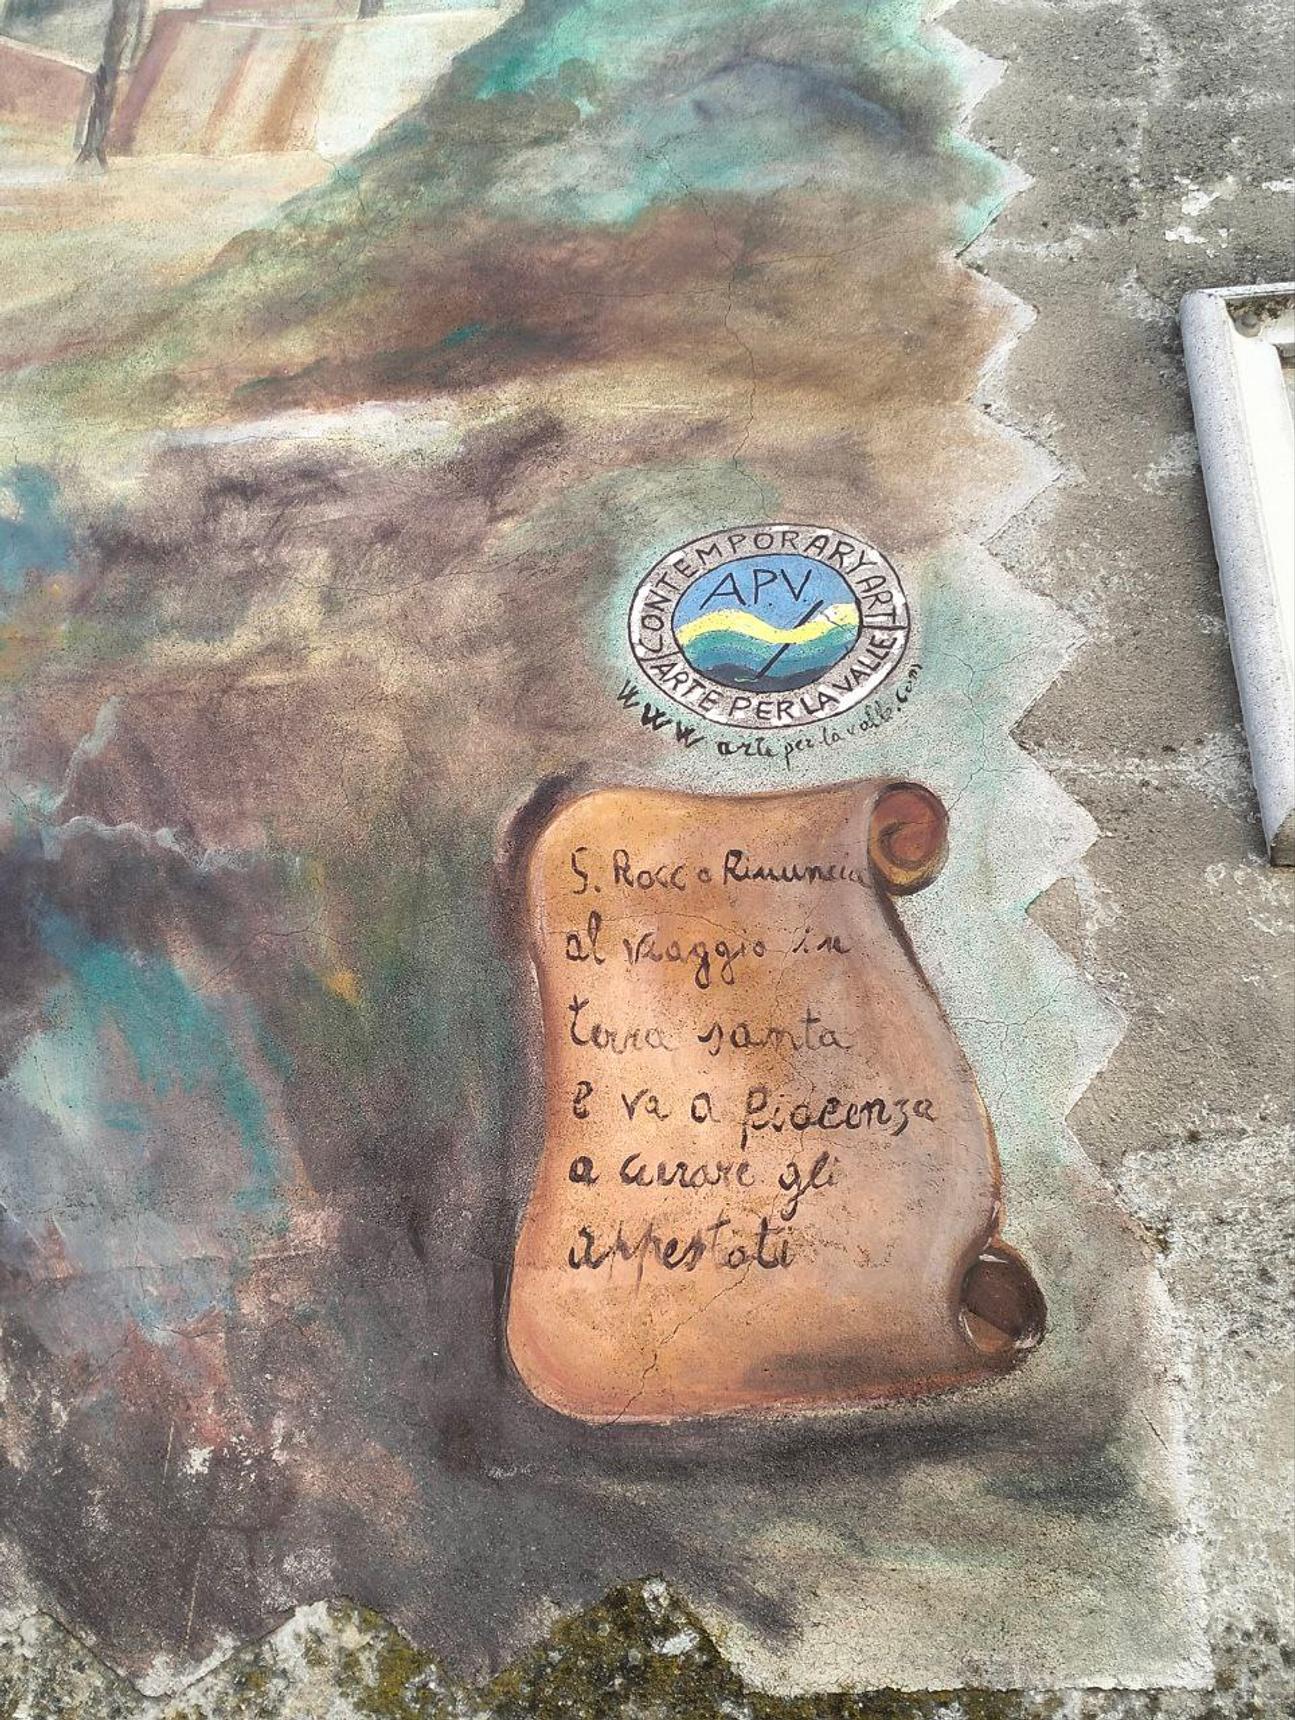 CONTEMPORARY ART
APV
ARTE PER LA VALLE
www arte per la valle.com
S. Rocco Rinuncia
al viaggio in
terra santa
e va a Piacenza
a curare gli
appestati